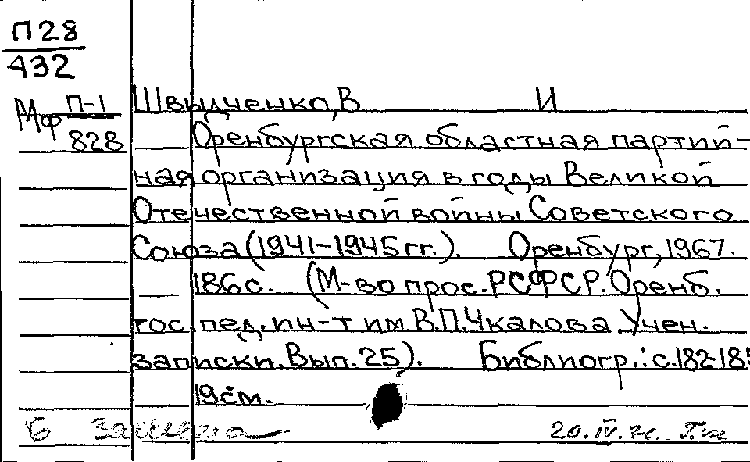 П28
432
Мф П-1
828
Швыдченко, В И
Оренбургская областная партий-
ная организация в годы Великой
Отечественной войны Советского
Союза (1941-1945 гг.). Оренбург, 1967.
186 с. (М-во прос. РСФСР. Оренб.
гос. пед. ин-т им В.П. Чкалова. Учен.
записки. Вып. 25). Библиогр.: с. 182-185
19 см.
20. IV.